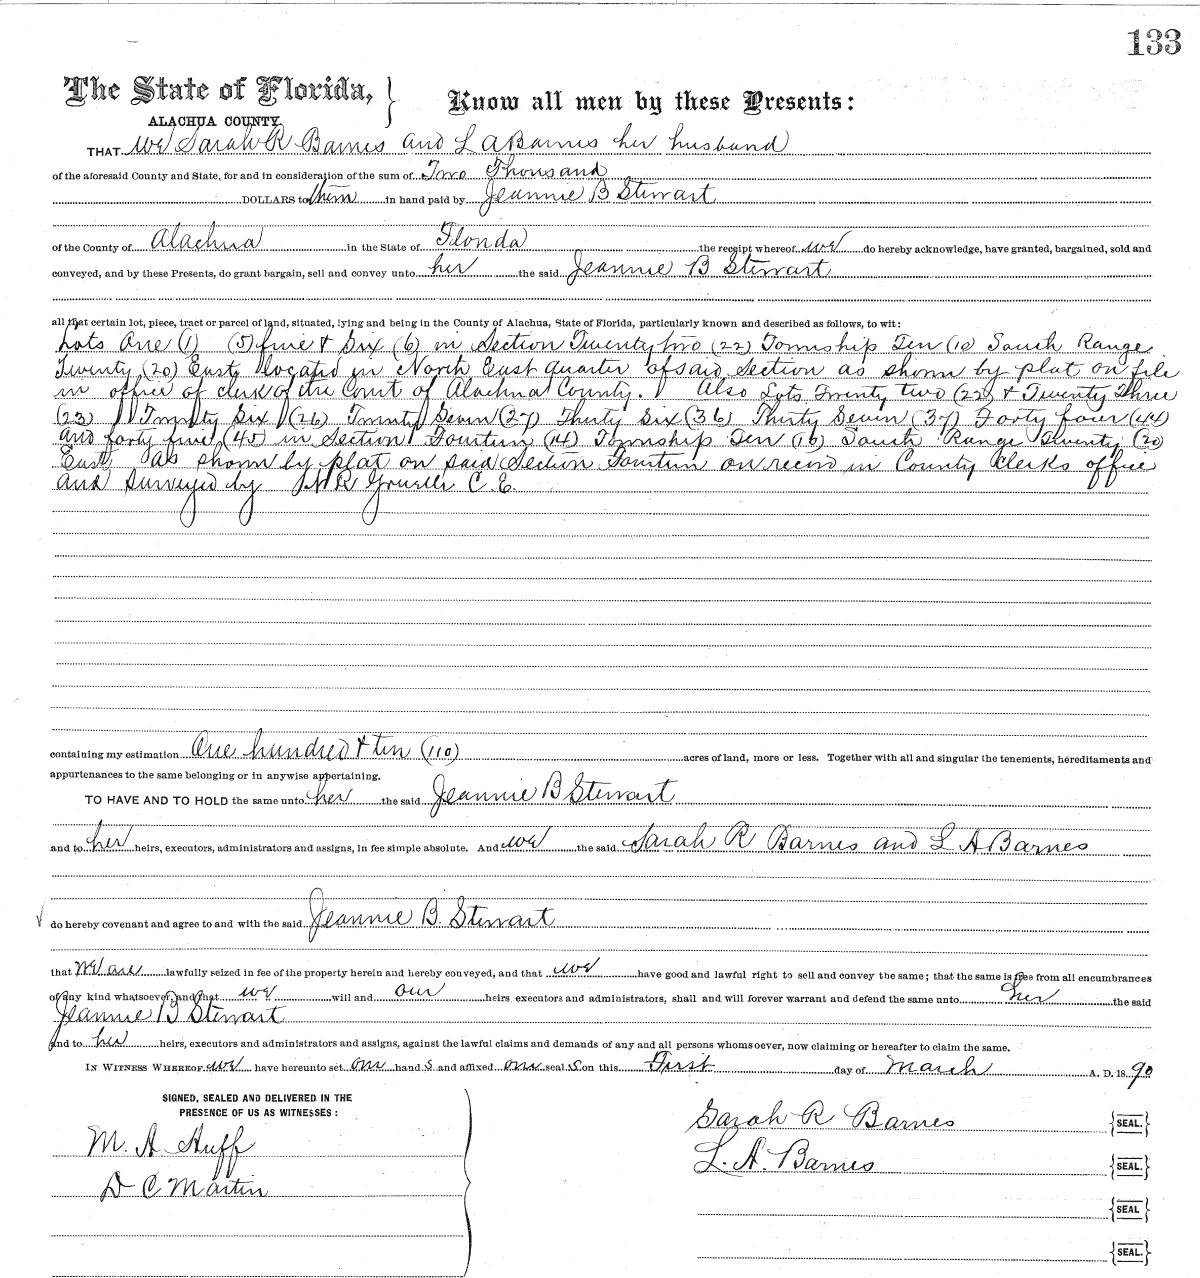 133
The State of Florida,
ALACHUA COUNTY.
Know all men by these Presents:
THAT we Sarah R Barnes and L A Barnes her husband
of the aforesaid County and State, for and in consideration of the sum of Two Thousand
DOLLARS to them in hand paid by Jeannie B Stewart
of the County of Alachua in the State of Florida the receipt whereof we do hereby acknowledge, have granted, bargained, sold and
conveyed, and by these Presents, do grant bargain, sell and convey unto her the said Jeannie B Stewart
all that certain lot, piece, tract or parcel of land, situated, lying and being in the County of Alachua, State of Florida, particularly known and described as follows, to wit:
Lots One (1) (5) five & Six (6) in Section Twenty two (22) Township Ten (10) South Range
Twenty (20) East, located in North East quarter of said Section as shown by plat on file
in office of clerk of the Court of Alachua County. Also Lots Twenty two (22) & Twenty Three
(23) Twenty Six (26) Twenty Seven (27) Thirty Six (36) Thirty Seven (37) Forty four (44)
and forty five (45) in Section Fourteen (14) Township Ten (10) South Range Twenty (20)
East, as shown by plat on said Section Fourteen on record in County Clerks office
and surveyed by C. E.
containing my estimation One hundred & ten (110) acres of land, more or less. Together with all and singular the tenements, hereditaments and
appurtenances to the same belonging or in anywise appertaining.
TO HAVE AND TO HOLD the same unto her the said Jeannie B Stewart
and to her heirs, executors, administrators and assigns, in fee simple absolute. And we the said Sarah R Barnes and L A Barnes
do hereby covenant and agree to and with the said Jeannie B. Stewart
that we are lawfully seized in fee of the property herein and hereby conveyed, and that we have good and lawful right to sell and convey the same; that the same is free from all encumbrances
of any kind whatsoever, and that we will and our heirs, executors and administrators, shall and will forever warrant and defend the same unto her the said
Jeannie B Stewart
and to her heirs, executors and administrators and assigns, against the lawful claims and demands of any and all persons whomsoever, now claiming or hereafter to claim the same.
IN WITNESS WHEREOF we have hereunto set our hand s and affixed our seal s on this First day of March A. D. 18 90
SIGNED, SEALED AND DELIVERED IN THE
PRESENCE OF US AS WITNESSES:
M. A Huff
D C Martin
Sarah R Barnes {SEAL.}
L. A. Barnes {SEAL.}
{SEAL}
{SEAL.}